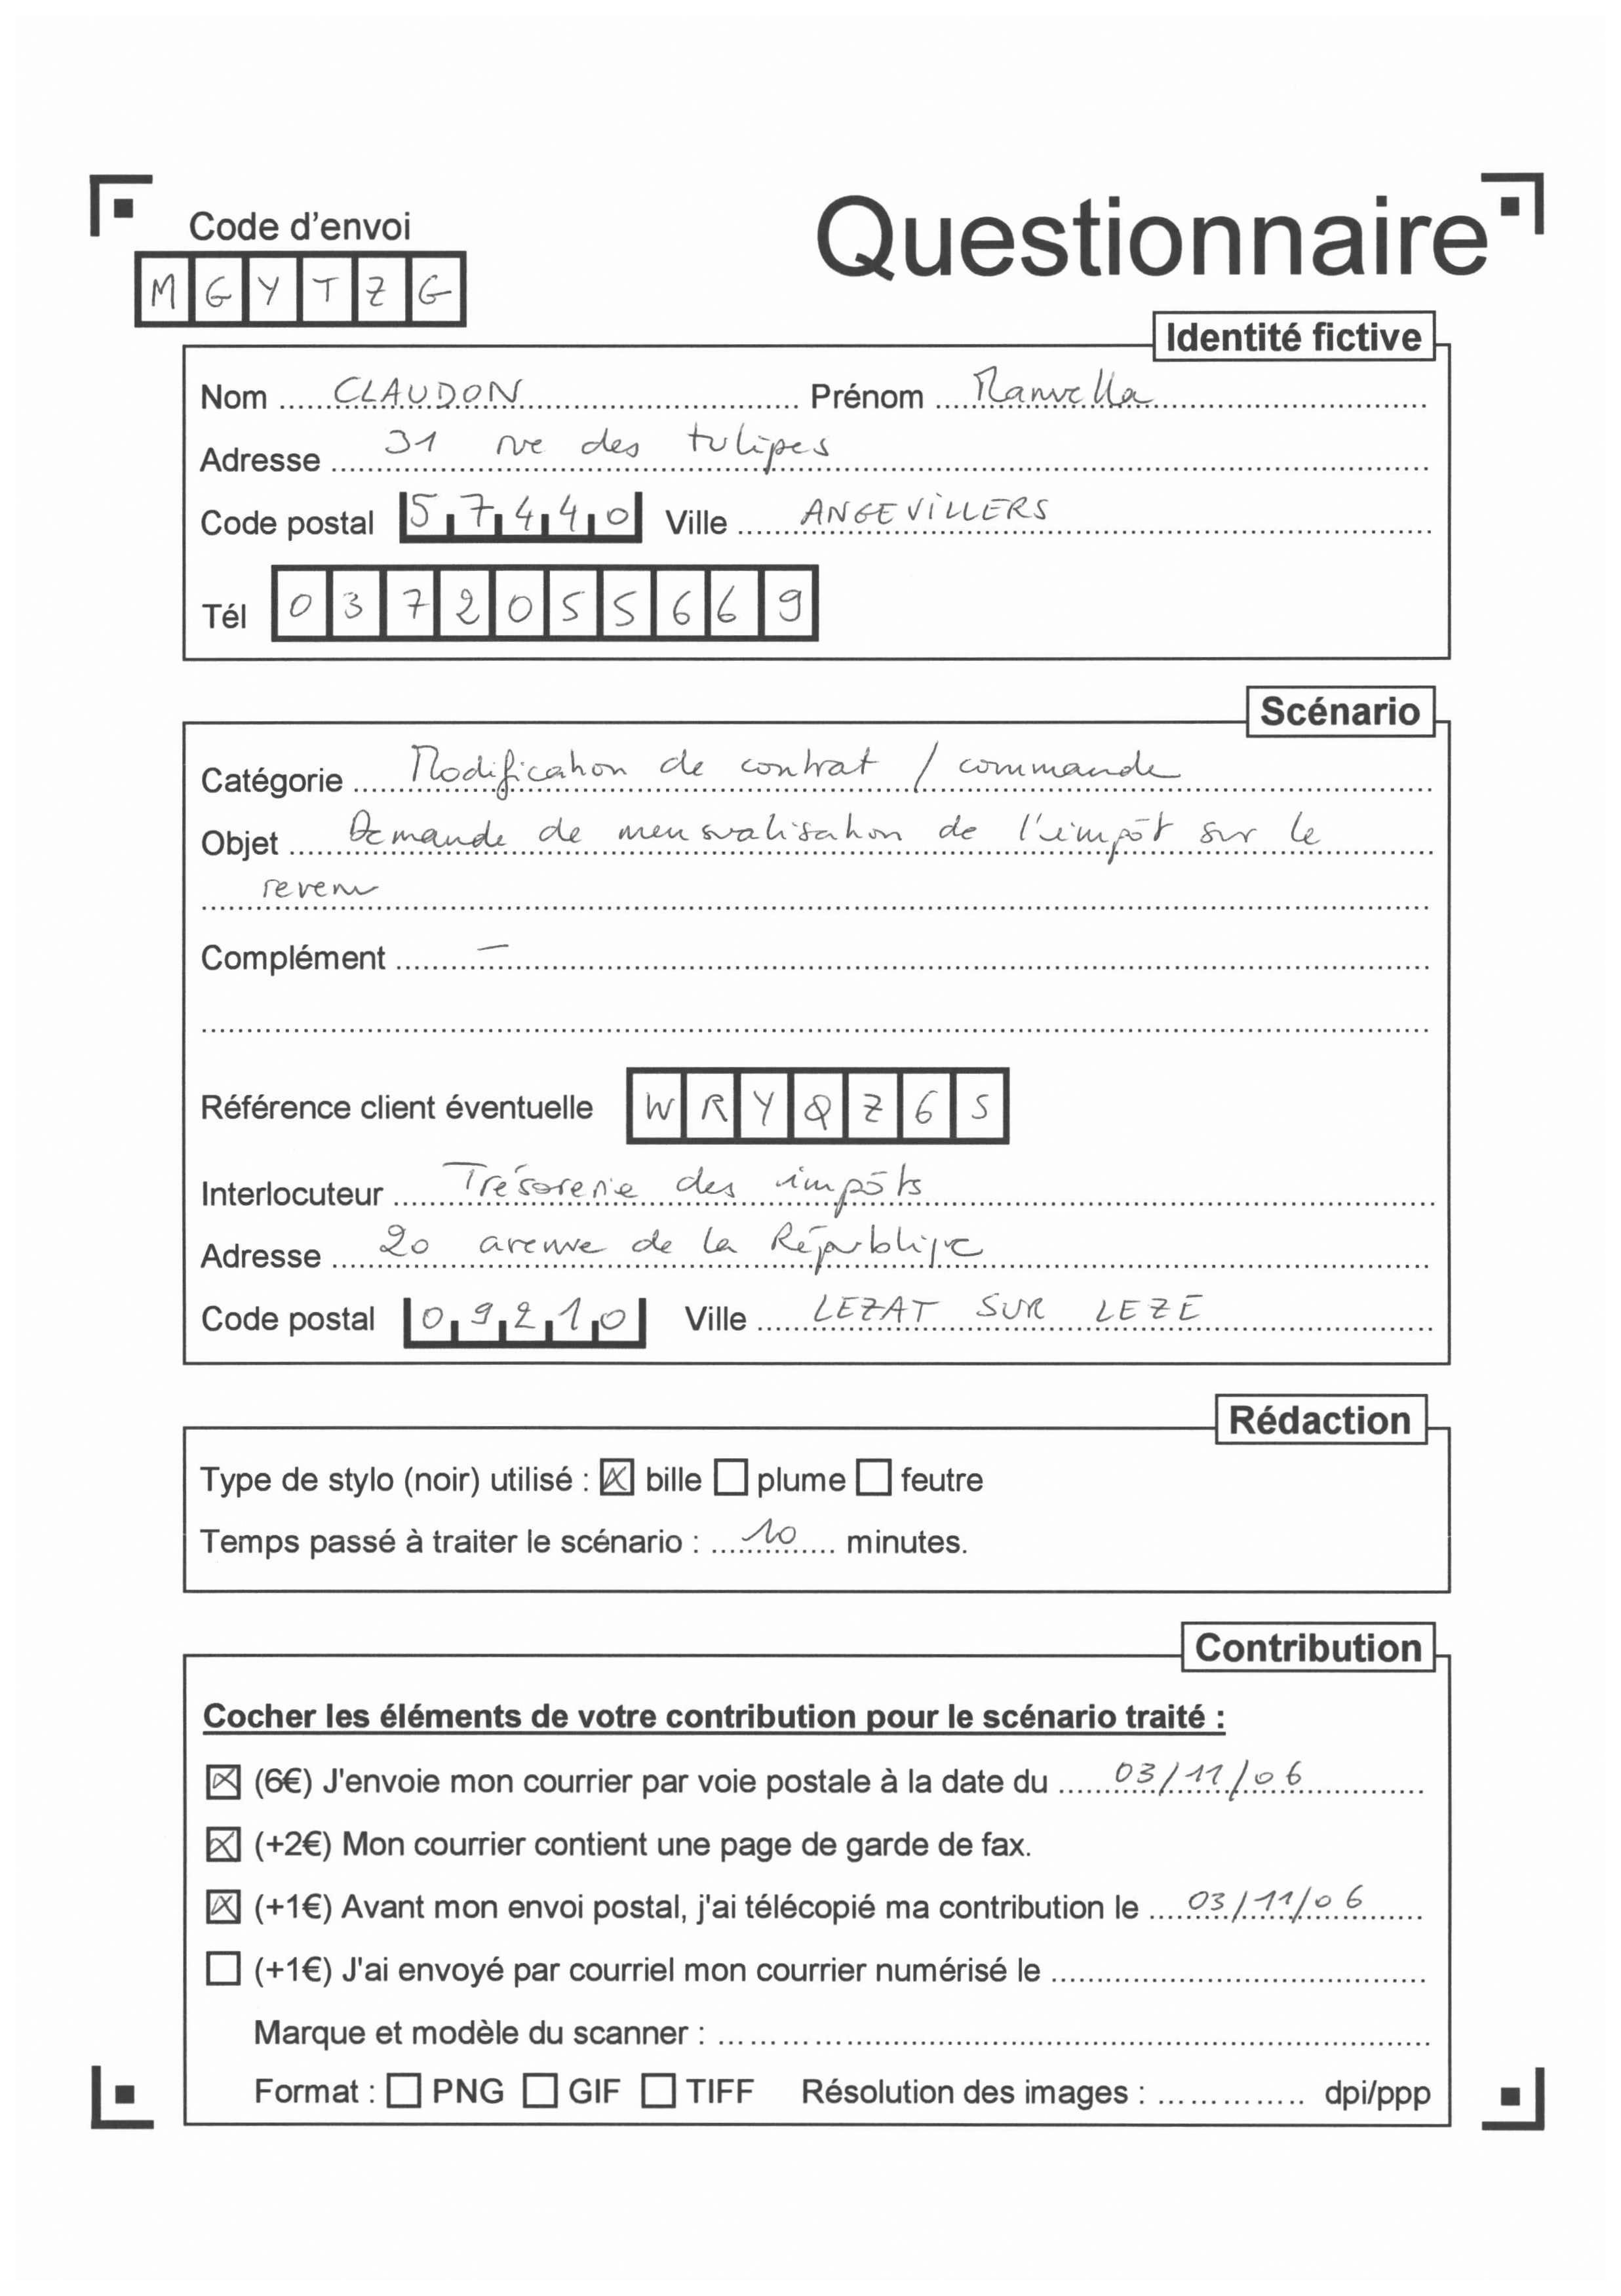 Code d'envoi
Questionnaire
M G Y T Z G
Identité fictive
Nom CLAUDON Prénom Manuella
Adresse 31 rue des tulipes
Code postal 57440 Ville ANGEVILLERS
Tél 0372055669
Scénario
Catégorie Modification de contrat / commande
Objet Demande de mensualisation de l'impôt sur le
revenu
Complément –
Référence client éventuelle WRYQZ6S
Interlocuteur Trésorerie des impôts
Adresse 20 avenue de la République
Code postal 09210 Ville LEZAT SUR LEZE
Rédaction
Type de stylo (noir) utilisé : ☒ bille ☐ plume ☐ feutre
Temps passé à traiter le scénario : 10 minutes.
Contribution
Cocher les éléments de votre contribution pour le scénario traité :
☒ (6€) J'envoie mon courrier par voie postale à la date du 03/11/06
☒ (+2€) Mon courrier contient une page de garde de fax.
☒ (+1€) Avant mon envoi postal, j'ai télécopié ma contribution le 03/11/06
☐ (+1€) J'ai envoyé par courriel mon courrier numérisé le
Marque et modèle du scanner :
Format : ☐ PNG ☐ GIF ☐ TIFF Résolution des images : dpi/ppp